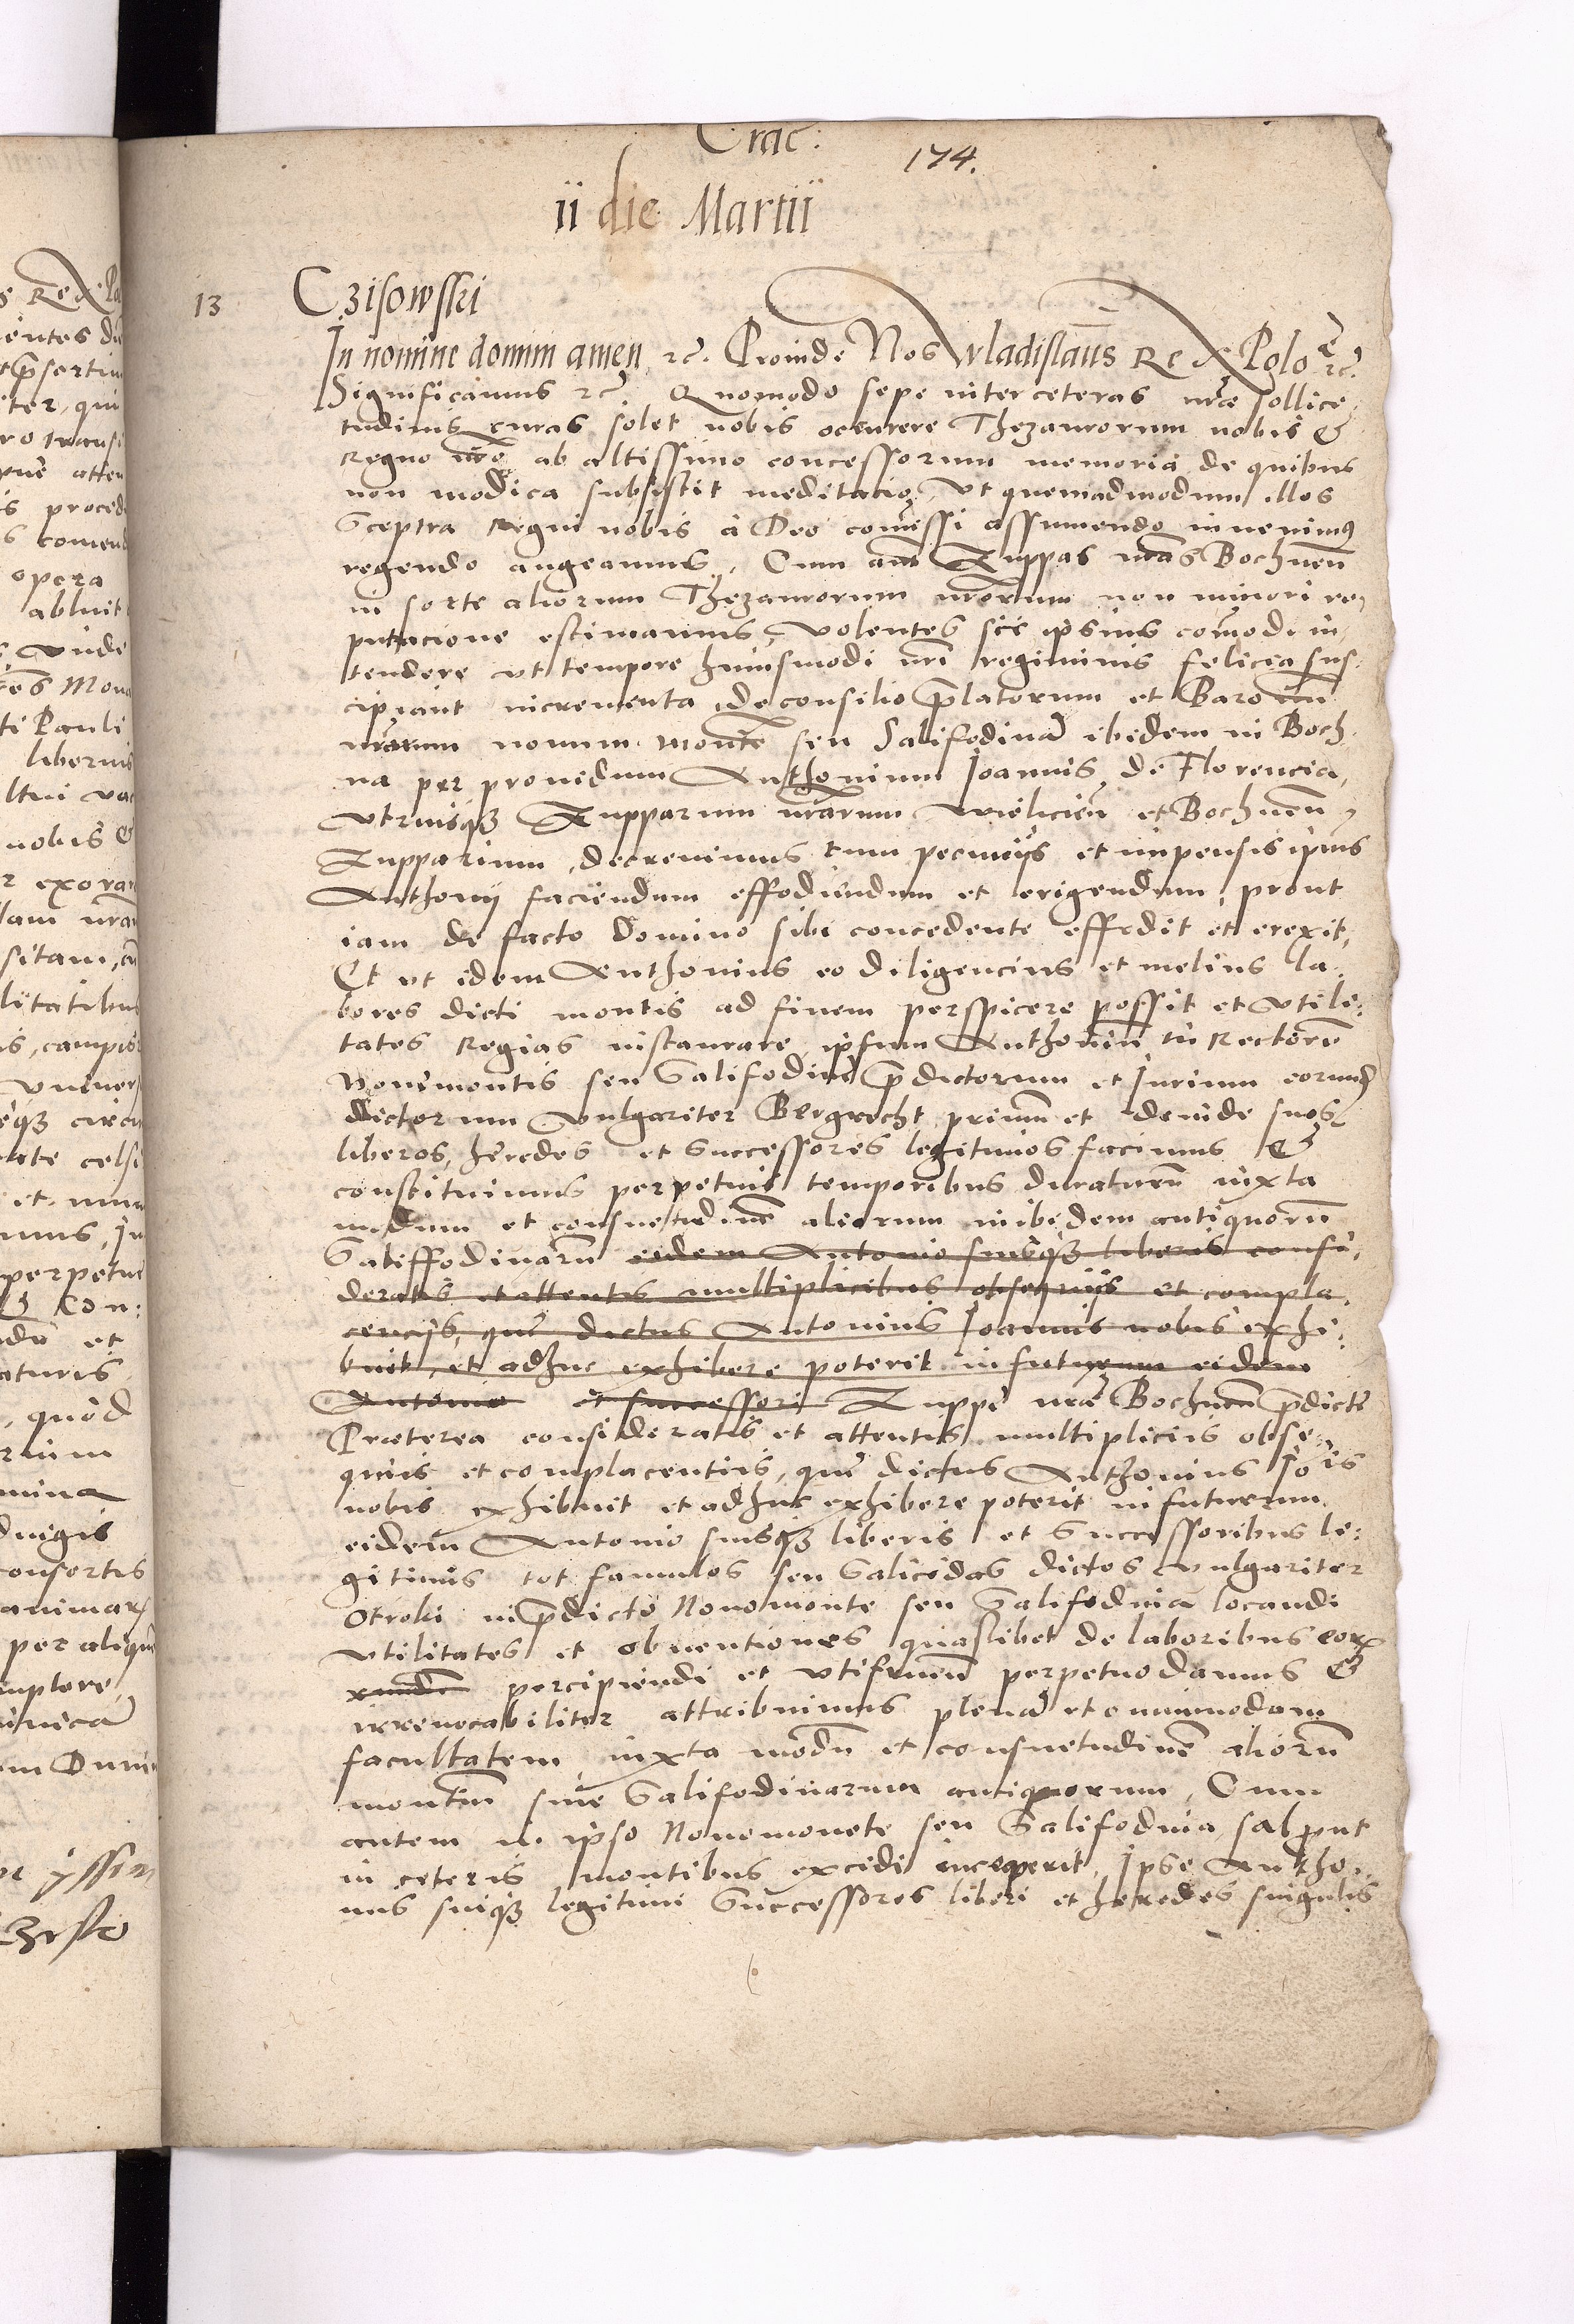 Crac:
174.
ii die Martii
13 Czisowsski
In nomine domini amen, rc. Proinde Nos Wladislaus Rex Polo e rc.
Significamus rc. Quomodo sepe inter ceteras nrae sollice.
tudinis curas solet nobis occurrere Thezaurorum nobis &
Regno nro ab altissimo concessorum memoria, de quibus
non modica subsistit meditacio, Ut quemadmodum illos
Sceptra Regni nobis a Deo comissi assumendo invenimus
regendo augeamus, Cum aut Zuppas nras Bochnen
in sorte aliorum Thezaurorum nrorum non minori re,
putacione estimamus, volentes sic ipsius comodi in,
tendere ut tempore huiusmodi nri regiminis felicia sus,
cipiant incrementa, de consilio prelatorum et Baronu
nrorum nouum monte seu Salifodina ibidem in Boch,
na per prouidum Anthonium Joannis de Florencia,
utriusq Zupparum nrarum Wieliczien et Bochnen,
Zupparium, decreuimus cum pecuniis et impensis ipius
Anthonij faciendum effodiendum et erigendum, prout
iam de facto Domino sibi concedente effodit et erexit,
Et ut idem Anthonius eo diligencius et melius la,
bores dicti montis ad finem perspicere possit et utili,
tates Regias instaurare, ipsum Anthoniu in Rectore
Noui montis seu Salifodine predictorum et Jurium eorund
dictorum vulgariter Bergrecht primum et deinde suos
liberos, heredes et Successores legitimos facimus &
constituimus perpetuis temporibus duraturu iuxta
modum et consuetudine aliorum inibidem antiquoru
Saliffodinaru eidem Antonio suisq liberis consi,
deratis et attentis multiplicibus obsequijs et compla,
cencijs, que dictus Antonius Joannis nobis exhi,
buit, et adhuc exhibere poterit in futurum eidem
Antonio et successori Zuppe nrae Bochnen predicte
Praeterea consideratis et attentis multipliciis obse,
quiis et complacentiis, que dictus Anthonius Jois
nobis exhibuit et adhuc exhibere poterit in futurum
eidem Antonio suisq liberis et Successoribus le,
gitimis tot famulos seu Salicidas dictos vulgariter
Otroki in predicto Nouomonte seu Salifodina locandi
utilitates et obuentiones quaslibet de laboribus eor
percipiendi et utifruen perpetuo damus &
irreuocabiliter attribuimus plena et omnimodam
facultatem, iuxta modu et consuetudine alioru
montiu siue Salifodinarum antiquorum, Cum
autem in ipso Nouomonete seu Salifodina, sal put
in ceteris montibus excidi inceperit, Ipse Antho,
nius suiq legitimi Successores liberi et heredes singulis